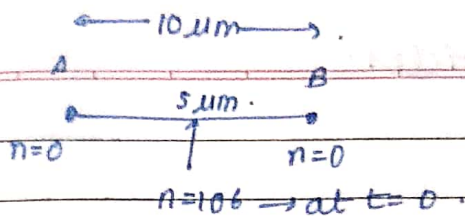 10 μm
A B
5 μm.
n=0 n=0
n=106 → at t= 0.